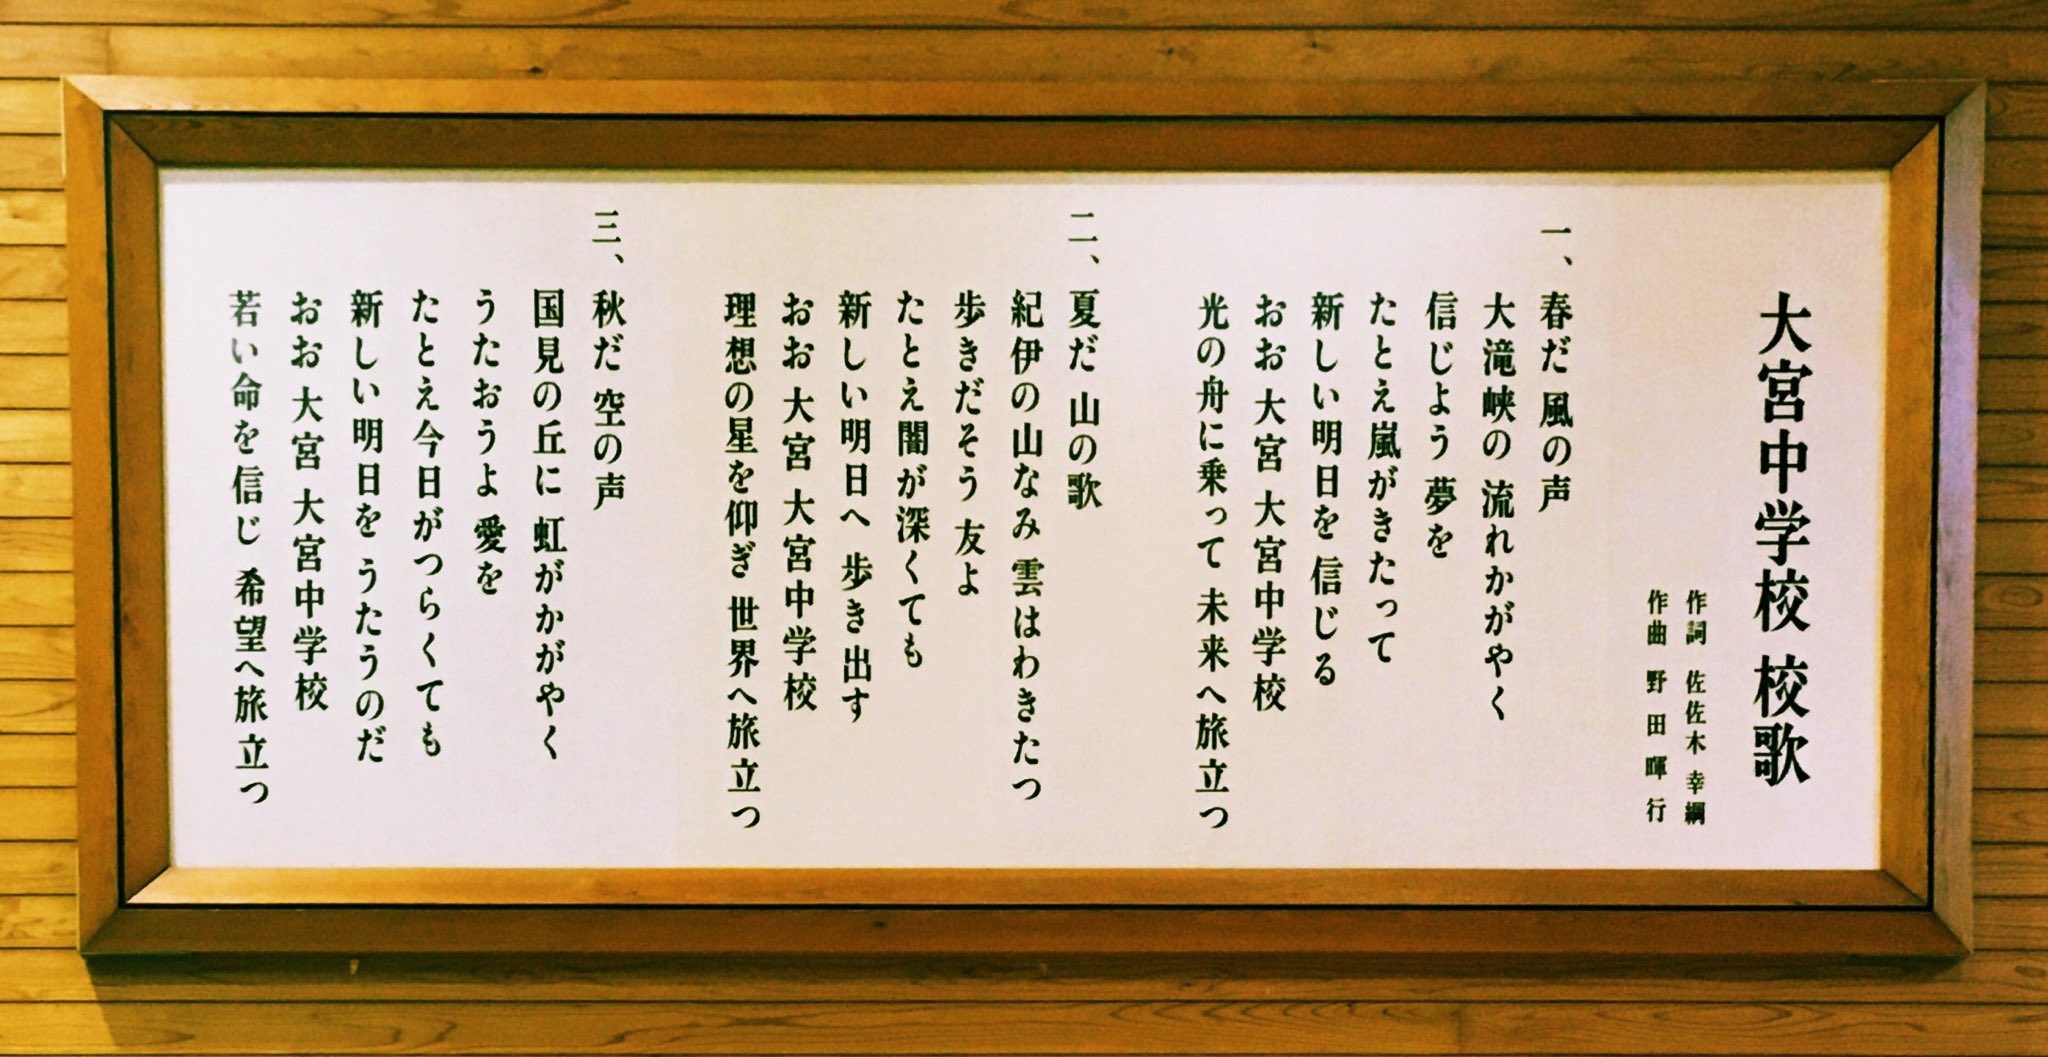 大宮中学校 校歌
作詞 佐佐木 幸綱
作曲 野田 暉行
一、春だ 風の声
大滝峡の 流れかがやく
信じよう 夢を
たとえ嵐がきたって
新しい明日を 信じる
おお 大宮 大宮中学校
光の舟に乗って 未来へ旅立つ
二、夏だ 山の歌
紀伊の山なみ 雲はわきたつ
歩きだそう 友よ
たとえ闇が深くても
新しい明日へ 歩き出す
おお 大宮 大宮中学校
理想の星を仰ぎ 世界へ旅立つ
三、秋だ 空の声
国見の丘に 虹がかがやく
うたおうよ 愛を
たとえ今日がつらくても
新しい明日を うたうのだ
おお 大宮 大宮中学校
若い命を信じ 希望へ旅立つ